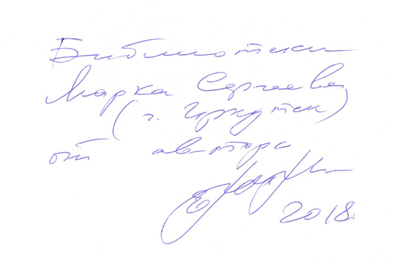 Библиотеки
Марка Сергеева
(г. Иркутск)
от автора
2018.